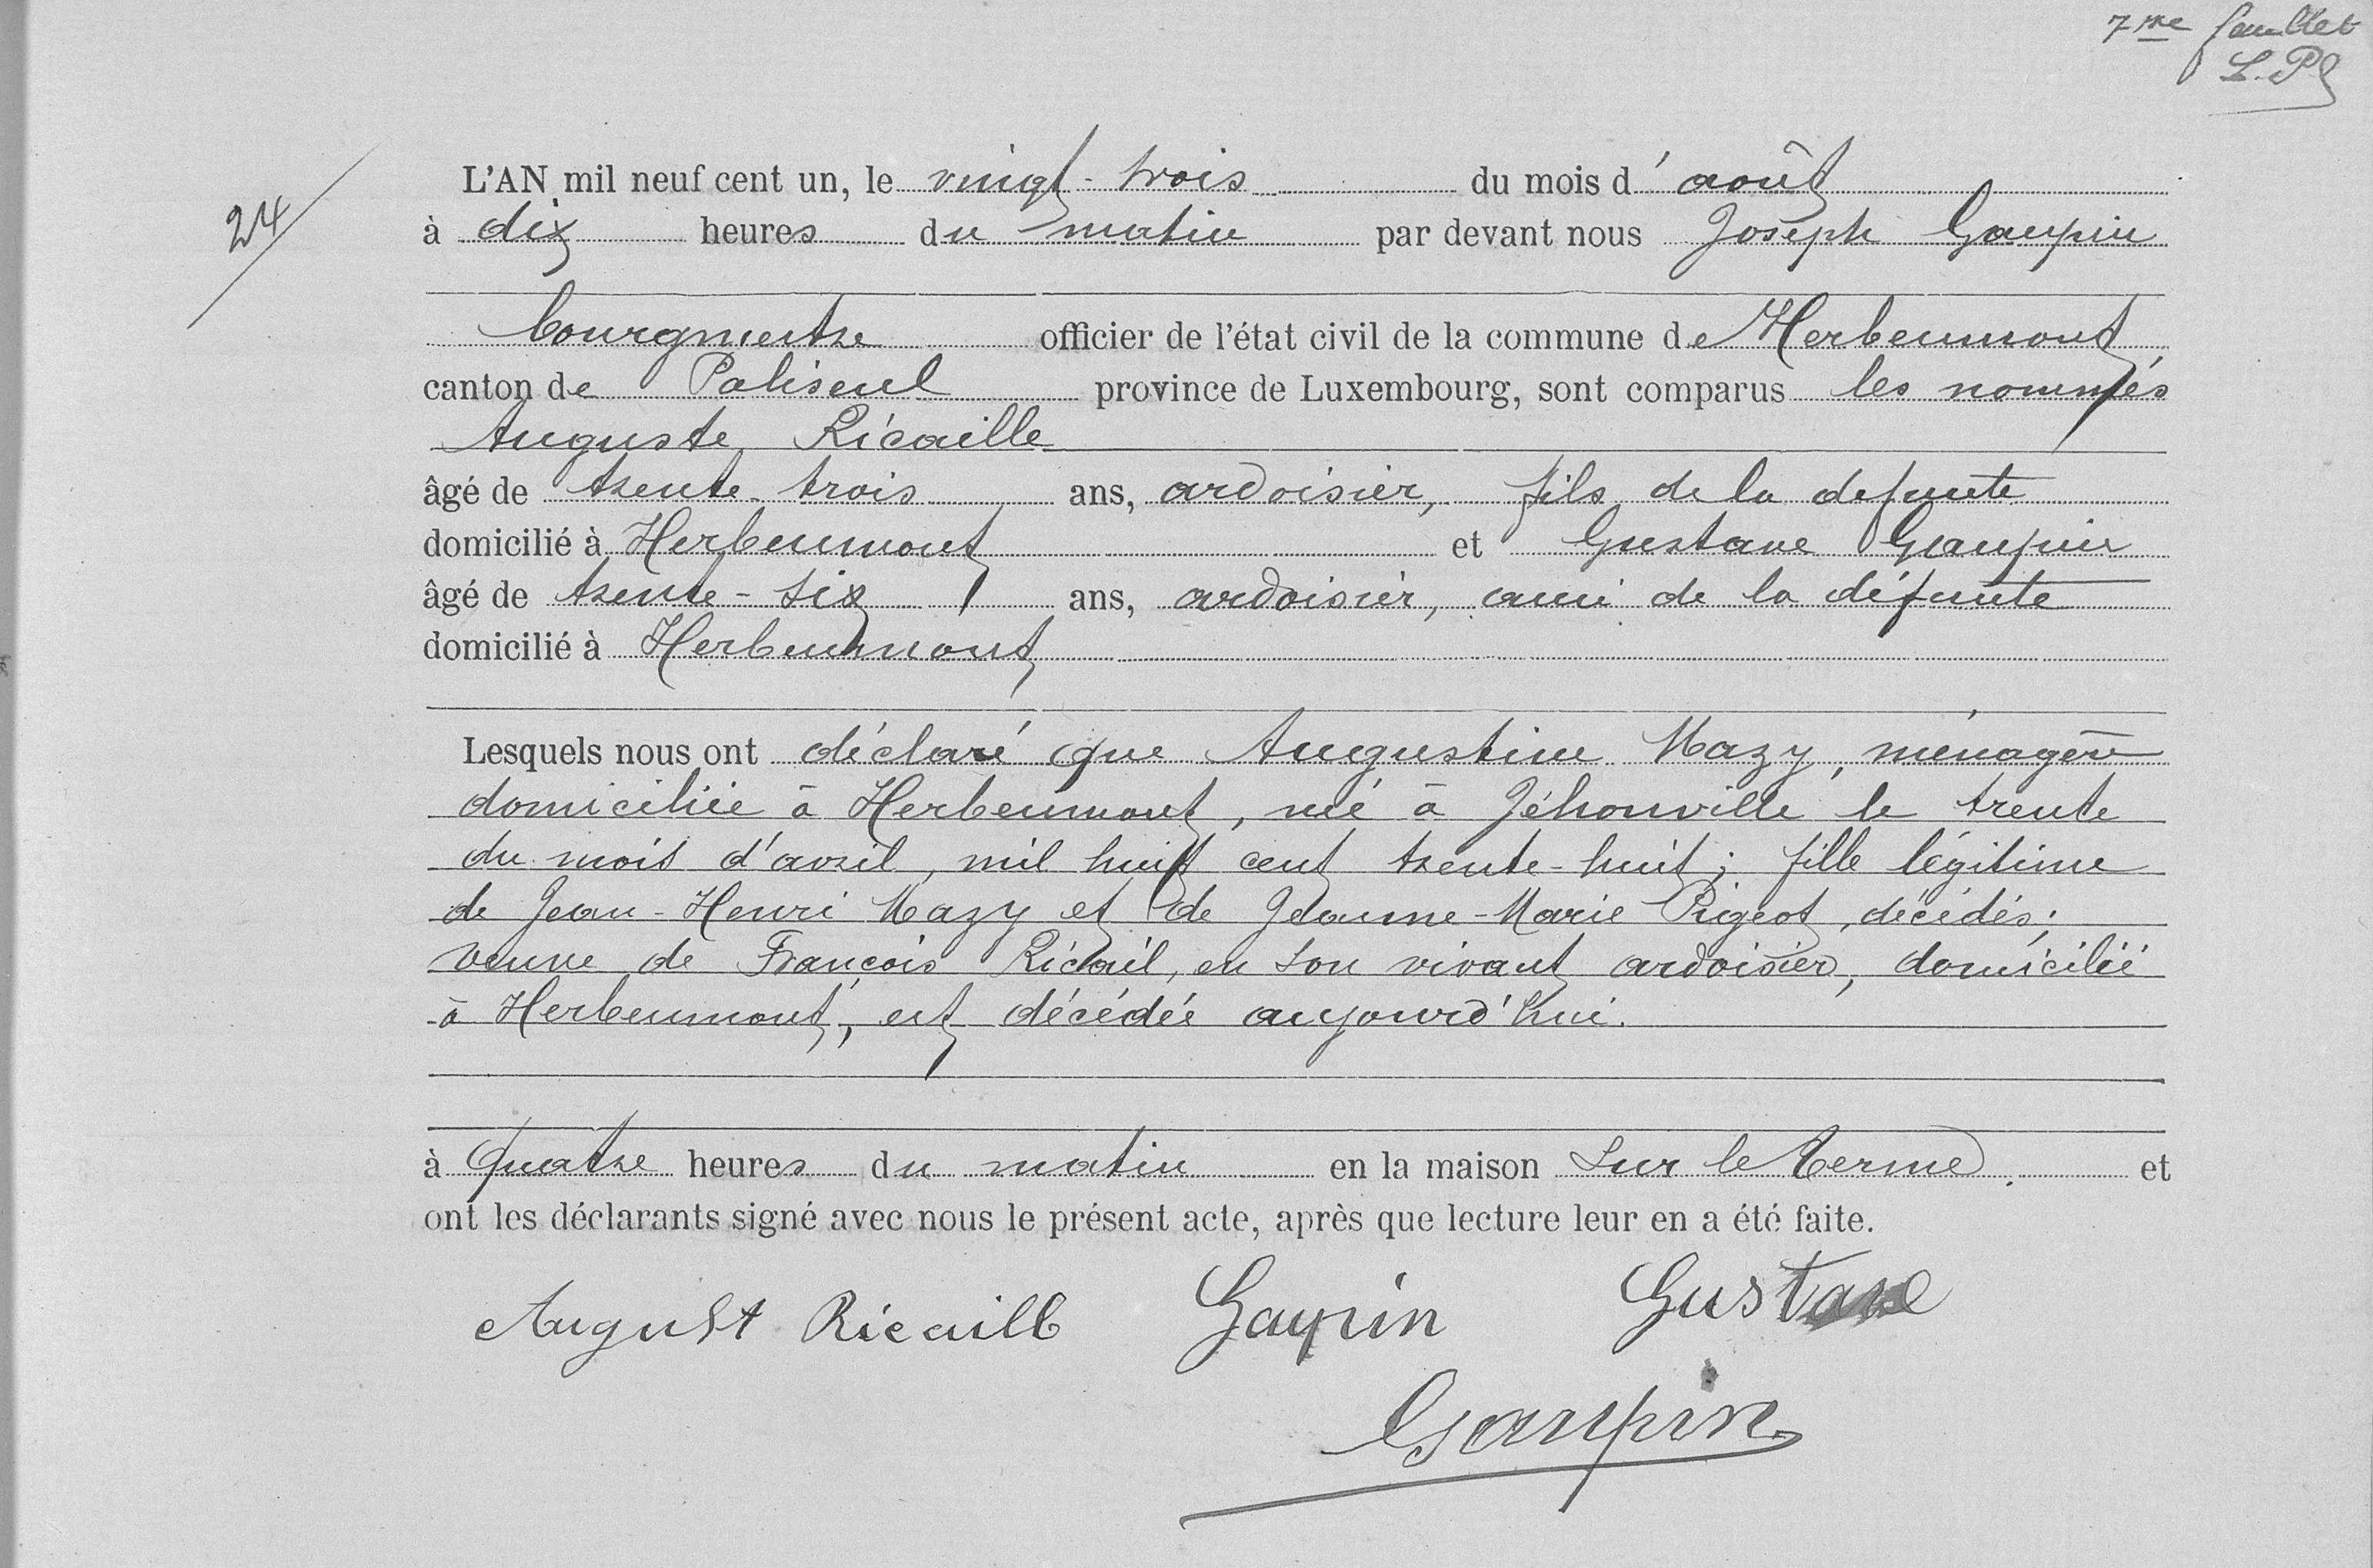 7me feuillet
L. P
24
L'AN mil neuf cent un, le vingt-trois du mois d'août
à dix heures du matin par devant nous Joseph Gaupin
bourgmestre officier de l'état civil de la commune de Herbeumont
canton de Paliseul province de Luxembourg, sont comparus les nommés
Auguste Ricaille
âgé de trente-trois ans, ardoisier, fils de la defunte
domicilié à Herbeumont et Gustave Gaupin
âgé de trente-six ans, ardoisier, ami de la défunte
domicilié à Herbeumont
Lesquels nous ont déclaré que Augustine Mazy, ménagère
domiciliée à Herbeumont, né à Jéhonville le trente
du mois d'avril, mil huit cent trente-huit; fille légitime
de Jean-Henri Mazy et de Jeanne-Marie Pigeot, décédés;
veuve de François Ricail, en son vivant ardoisier, domicilié
à Herbeumont, est décédée aujourd'hui.
à quatre heures du matin en la maison Sur le Terme. et
ont les déclarants signé avec nous le présent acte, après que lecture leur en a été faite.
August Ricaill Gaupin Gustave
Gaupin